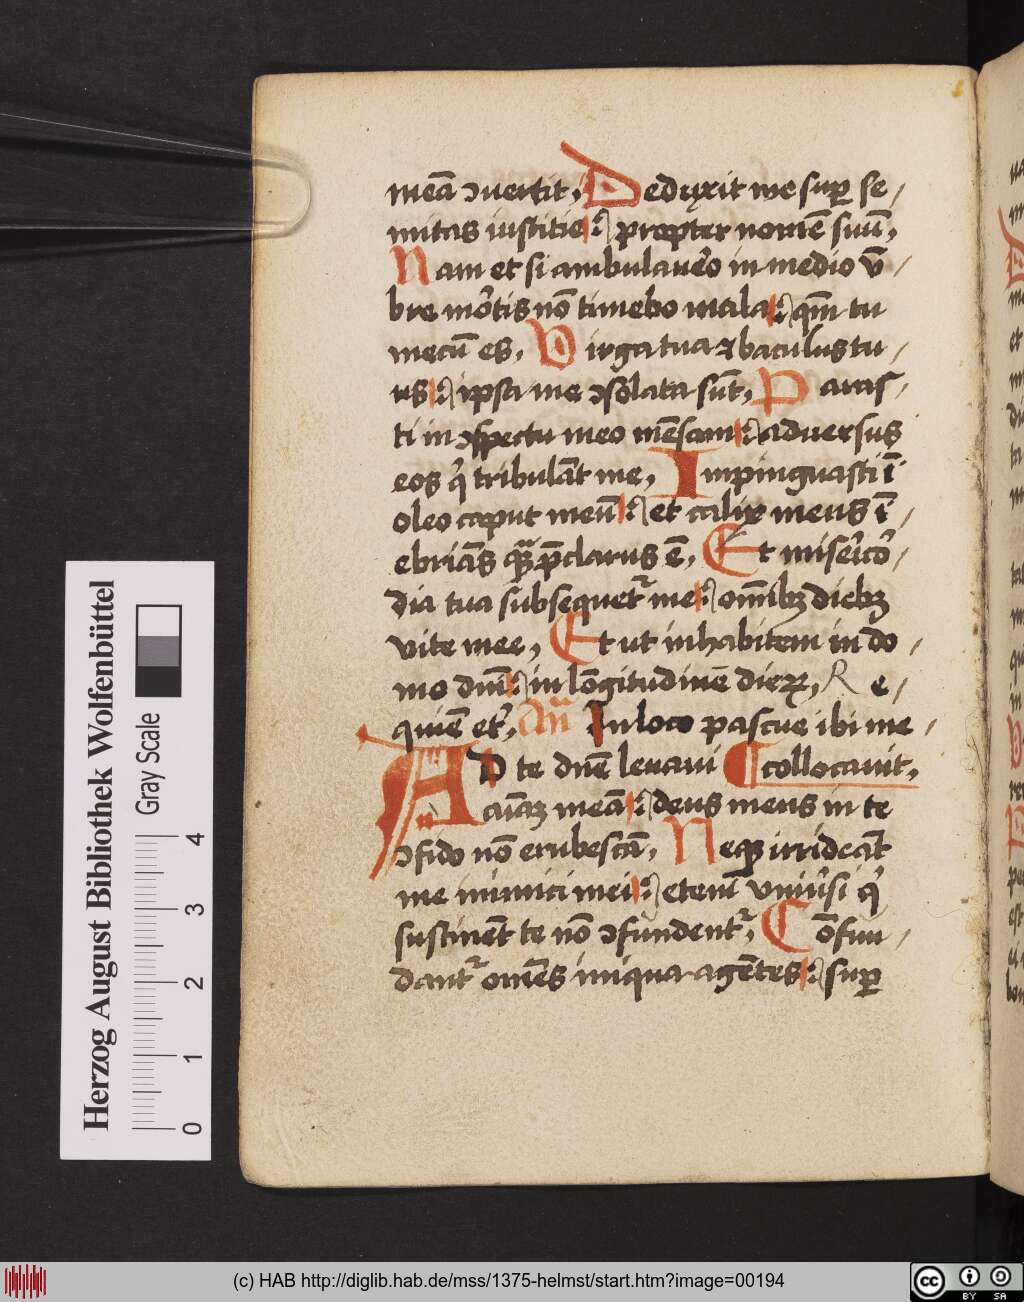 meā ꝯuertit, Dedyxit me suꝑ se /
mitas iustitie : propter nomē suū,
Nam et si ambulauero in medio v̄ /
bre mortis nō timebo mala : qm̄ tu
mecū es, Virga tua ⁊ baculus tu /
us : ipsa me ꝯsolata sūt, Paras /
ti in ꝯspectu meo mēsam : aduersus
eos qͥ tribulāt me, Impinguasti ī
oleo caput meū : et calix meus ī /
ebriās qͣ p̄clarus ē, Et misericor /
dia tua subsequetᷣ me : omībꝫ diebꝫ
vite mee, Et ut inhabitem in do /
mo dnī : in lōgitudinē dieꝝ, Re /
quiē et', An̄ In loco pascue ibi me /
AD te dnē leuaui ¶ collocauit,
aīaꝫ meā : deus meus in te
ꝯfido nō erubescā, Neqꝫ irrideāt
me inimici mei : etenī vniūsi qͥ
sustinēt te nō ꝯfundentᷣ, Cōfun /
dantᷣ omēs iniqua agētes : suꝑ
Herzog August Bibliothek Wolfenbüttel
Gray Scale
0 1 2 3 4
(c) HAB http://diglib.hab.de/mss/1375-helmst/start.htm?image=00194
cc BY SA